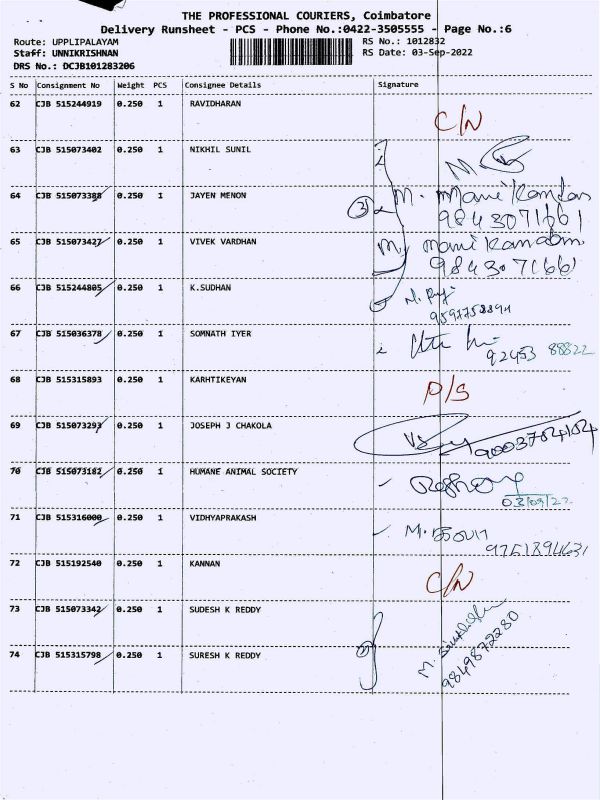 THE PROFESSIONAL COURIERS, Coimbatore
Delivery Runsheet - PCS - Phone No.:0422-3505555 - Page No.:6
Route: UPPLIPALAYAM RS No.: 1012832
Staff: UNNIKRISHNAN RS Date: 03-Sep-2022
DRS No.: DCJB101283206
S No Consignment No Weight PCS Consignee Details Signature
62 CJB 515244919 0.250 1 RAVIDHARAN C/N
63 CJB 515073402 0.250 1 NIKHIL SUNIL
64 CJB 515073388 0.250 1 JAYEN MENON M. Manikandan
9843071661
65 CJB 515073427 0.250 1 VIVEK VARDHAN M. manikandan
984307166
66 CJB 515244805 0.250 1 K.SUDHAN
67 CJB 515036378 0.250 1 SOMNATH IYER 92453 88822
68 CJB 515315893 0.250 1 KARHTIKEYAN P/S
69 CJB 515073293 0.250 1 JOSEPH J CHAKOLA 9003704104
70 CJB 515073182 0.250 1 HUMANE ANIMAL SOCIETY
03/09/22
71 CJB 515316000 0.250 1 VIDHYAPRAKASH M.
9751894631
72 CJB 515192540 0.250 1 KANNAN C/N
73 CJB 515073342 0.250 1 SUDESH K REDDY
74 CJB 515315798 0.250 1 SURESH K REDDY 9849872280